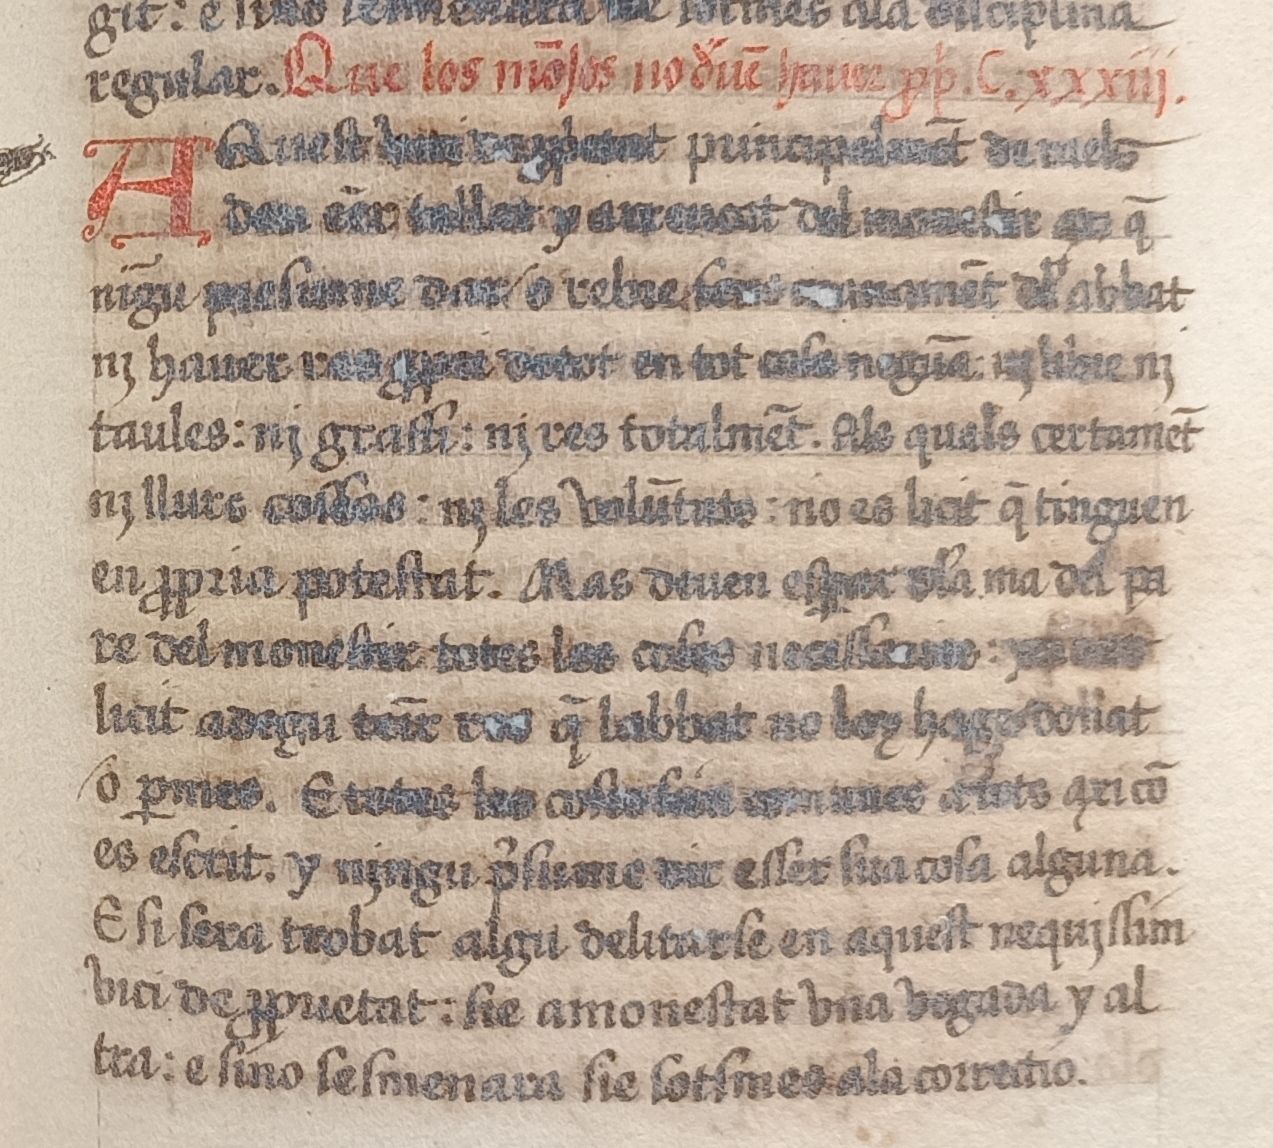 git: e sino sesmenara sie sotmes ala disciplina
regular. Que los mōjos no deuē hauer ꝓp̄. C. xxxiij.
AQuest principalmēt de raels
deu eēr tallat y arrencat del monestir q̄
nīgu presume dar o rebre sens manamēt del abbat
nj hauer res ꝓpri de tot en tot cosa neguna: nj libre nj
taules: nj graffi: nj res totalmēt. Als quals certamēt
nj llurs cosses: nj les volūtats: no es licit q̄ tinguen
en ꝓpria potestat. Mas deuen esperar dla ma del pa
re del monestir totes les coses necessaries: y no es
licit a degu tenir res q̄ labbat no loy hage donat
o ꝑmes. E totes les coses sien comunes a tots axi cō
es escrit. y njngu p̄sume dir esser sua cosa alguna.
E si sera trobat algu delitarse en aquest nequissim
vici de ꝓprietat: sie amonestat vna vegada y al
tra: e sino sesmenara sie sotsmes ala correctio.